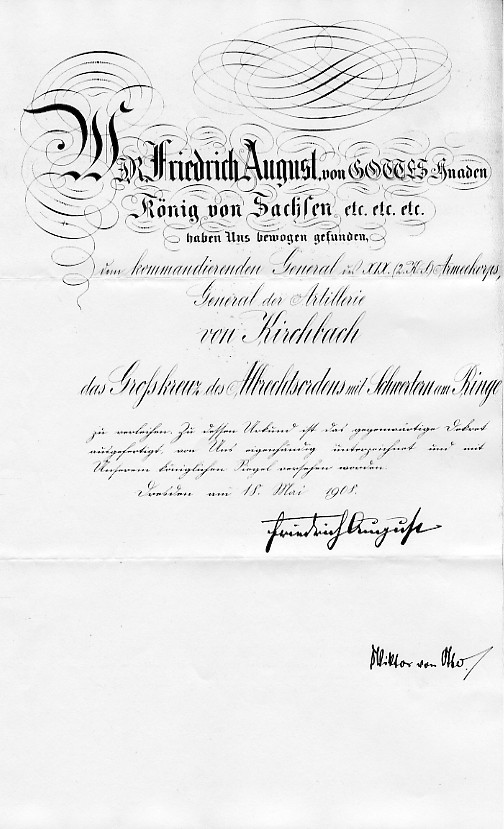 WIR Friedrich August, von GOTTES Gnaden
König von Sachsen, etc. etc. etc.
haben Uns bewogen gefunden,
dem kommandierenden General des XIX. (2. K. S.) Armeekorps,
General der Artillerie
von Kirchbach
das Großkreuz des Albrechtsordens mit Schwertern am Ringe
zu verleihen. Zu dessen Urkund ist das gegenwärtige Dekret
ausgefertigt, von Uns eigenhändig unterzeichnet und mit
Unserem Königlichen Siegel versehen worden.
Dresden am 18. Mai 1908.
Friedrich August
Viktor von Otto.